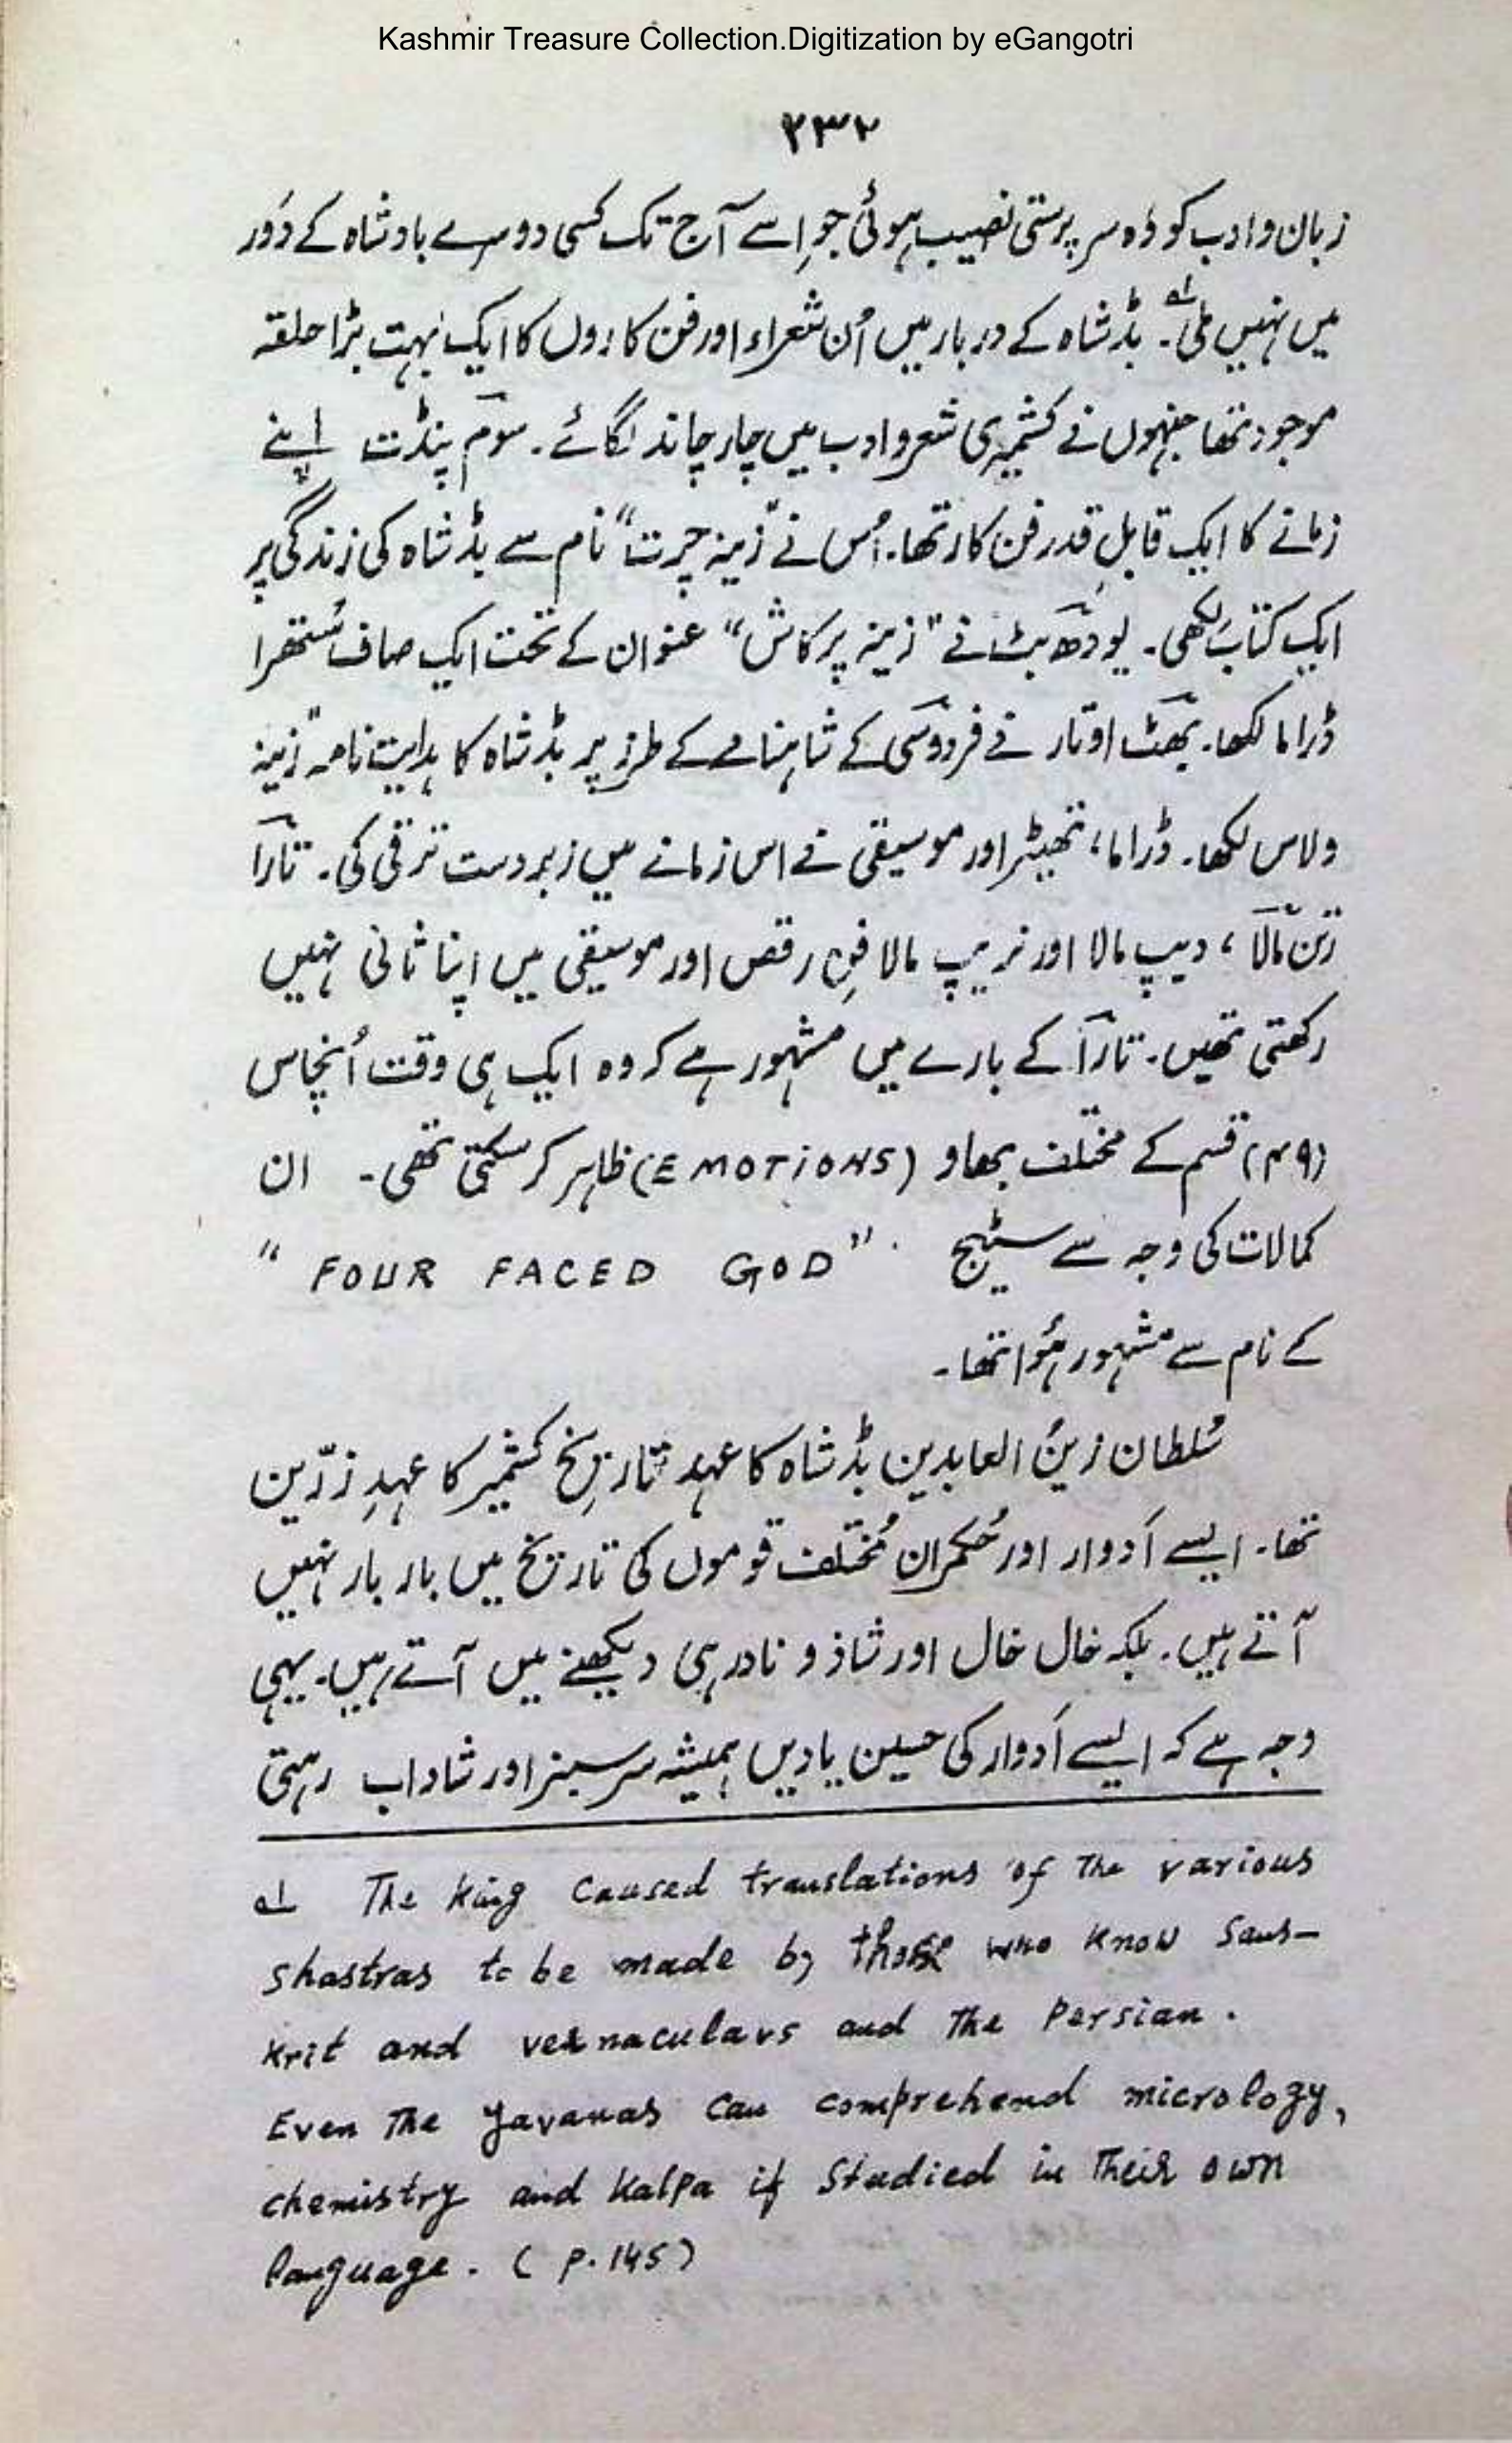 Kashmir Treasure Collection.Digitization by eGangotri
۲۳۲
زبان و ادب کو وُہ سر پرستی نصیب ہوئی جو اِسے آج تک کسی دوسرے بادشاہ کے دَور
میں نہیں ملی۔ ؎۱ بڈشاہ کے دربار میں اُن شعراء اور فن کاروں کا ایک بہت بڑا حلقہ
موجود تھا جنہوں نے کشمیری شعر و ادب میں چار چاند لگائے۔ سوم پنڈت اپنے
زمانے کا ایک قابلِ قدر فن کار تھا۔ اُس نے "زینہ چرت" نام سے بڈشاہ کی زندگی پر
ایک کتاب لکھی۔ یودھ بٹ نے "زینہ پرکاش" عنوان کے تحت ایک صاف سُتھرا
ڈراما لکھا۔ بھٹ اوتار نے فردوسی کے شاہنامے کے طرز پر بڈشاہ کا ہدایت نامہ "زینہ
ولاس لکھا۔ ڈراما، تھیٹر اور موسیقی نے اس زمانے میں زبردست ترقی کی۔ تارا
رتن مالا، دیپ مالا اور نریپ مالا فنِ رقص اور موسیقی میں اپنا ثانی نہیں
رکھتی تھیں۔ تارا کے بارے میں مشہور ہے کہ وہ ایک ہی وقت اُنچاس
(۴۹) قسم کے مختلف بھاو (EMOTiONS) ظاہر کر سکتی تھی۔ ان
کمالات کی وجہ سے سٹیج "FOUR FACED GOD"
کے نام سے مشہور ہُوا تھا۔
سُلطان زینُ العابدین بڈشاہ کا عہد تاریخِ کشمیر کا عہدِ زرّین
تھا۔ ایسے اَدوار اور حُکمران مُختلف قوموں کی تاریخ میں بار بار نہیں
آتے ہیں۔ بلکہ خال خال اور شاذ و نادر ہی دیکھنے میں آتے ہیں۔ یہی
وجہ ہے کہ ایسے اَدوار کی حسین یادیں ہمیشہ سرسبز اور شاداب رہتی
؎۱ The King Caused translations of The various
Shastras to be made by those who know Sans-
krit and vernaculars and The Persian.
Even The Yavanas Can comprehend micrology,
chemistry and Kalpa if Studied in Their own
language. (P. 145)